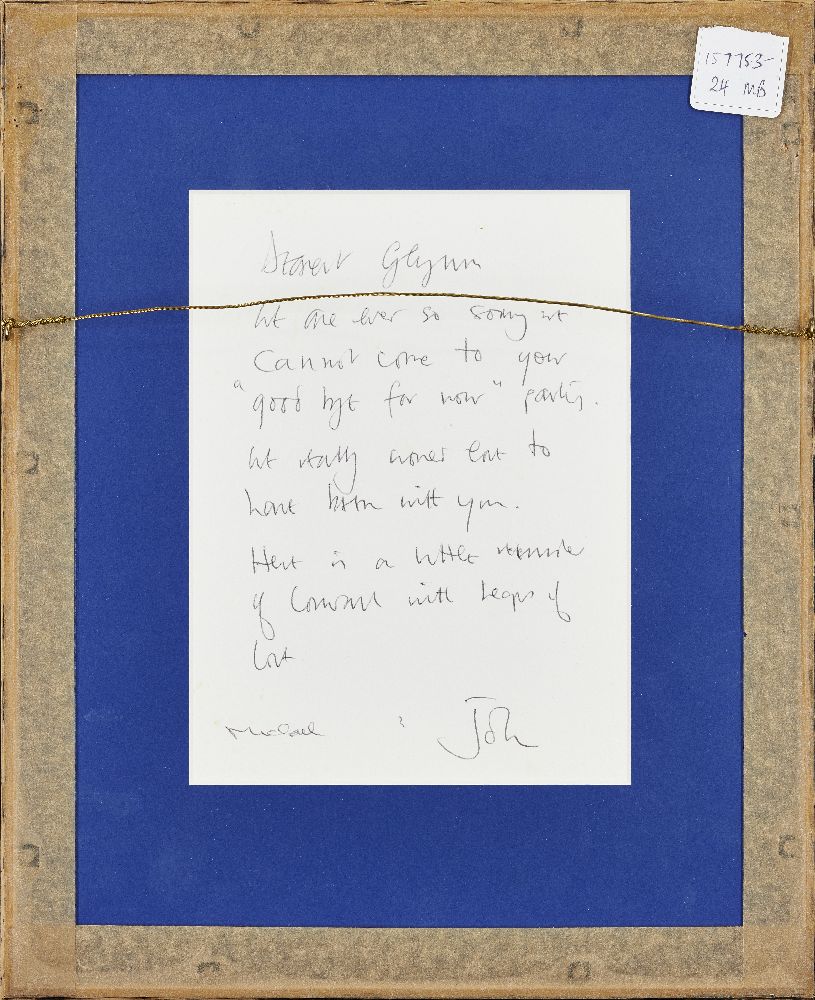 157753-
24 MB
Dearest Glynn
We are ever so sorry we
cannot come to your
"good bye for now" party.
We really would love to
have been with you.
Here is a little reminder
of Cornwall with heaps of
love
Michael & John